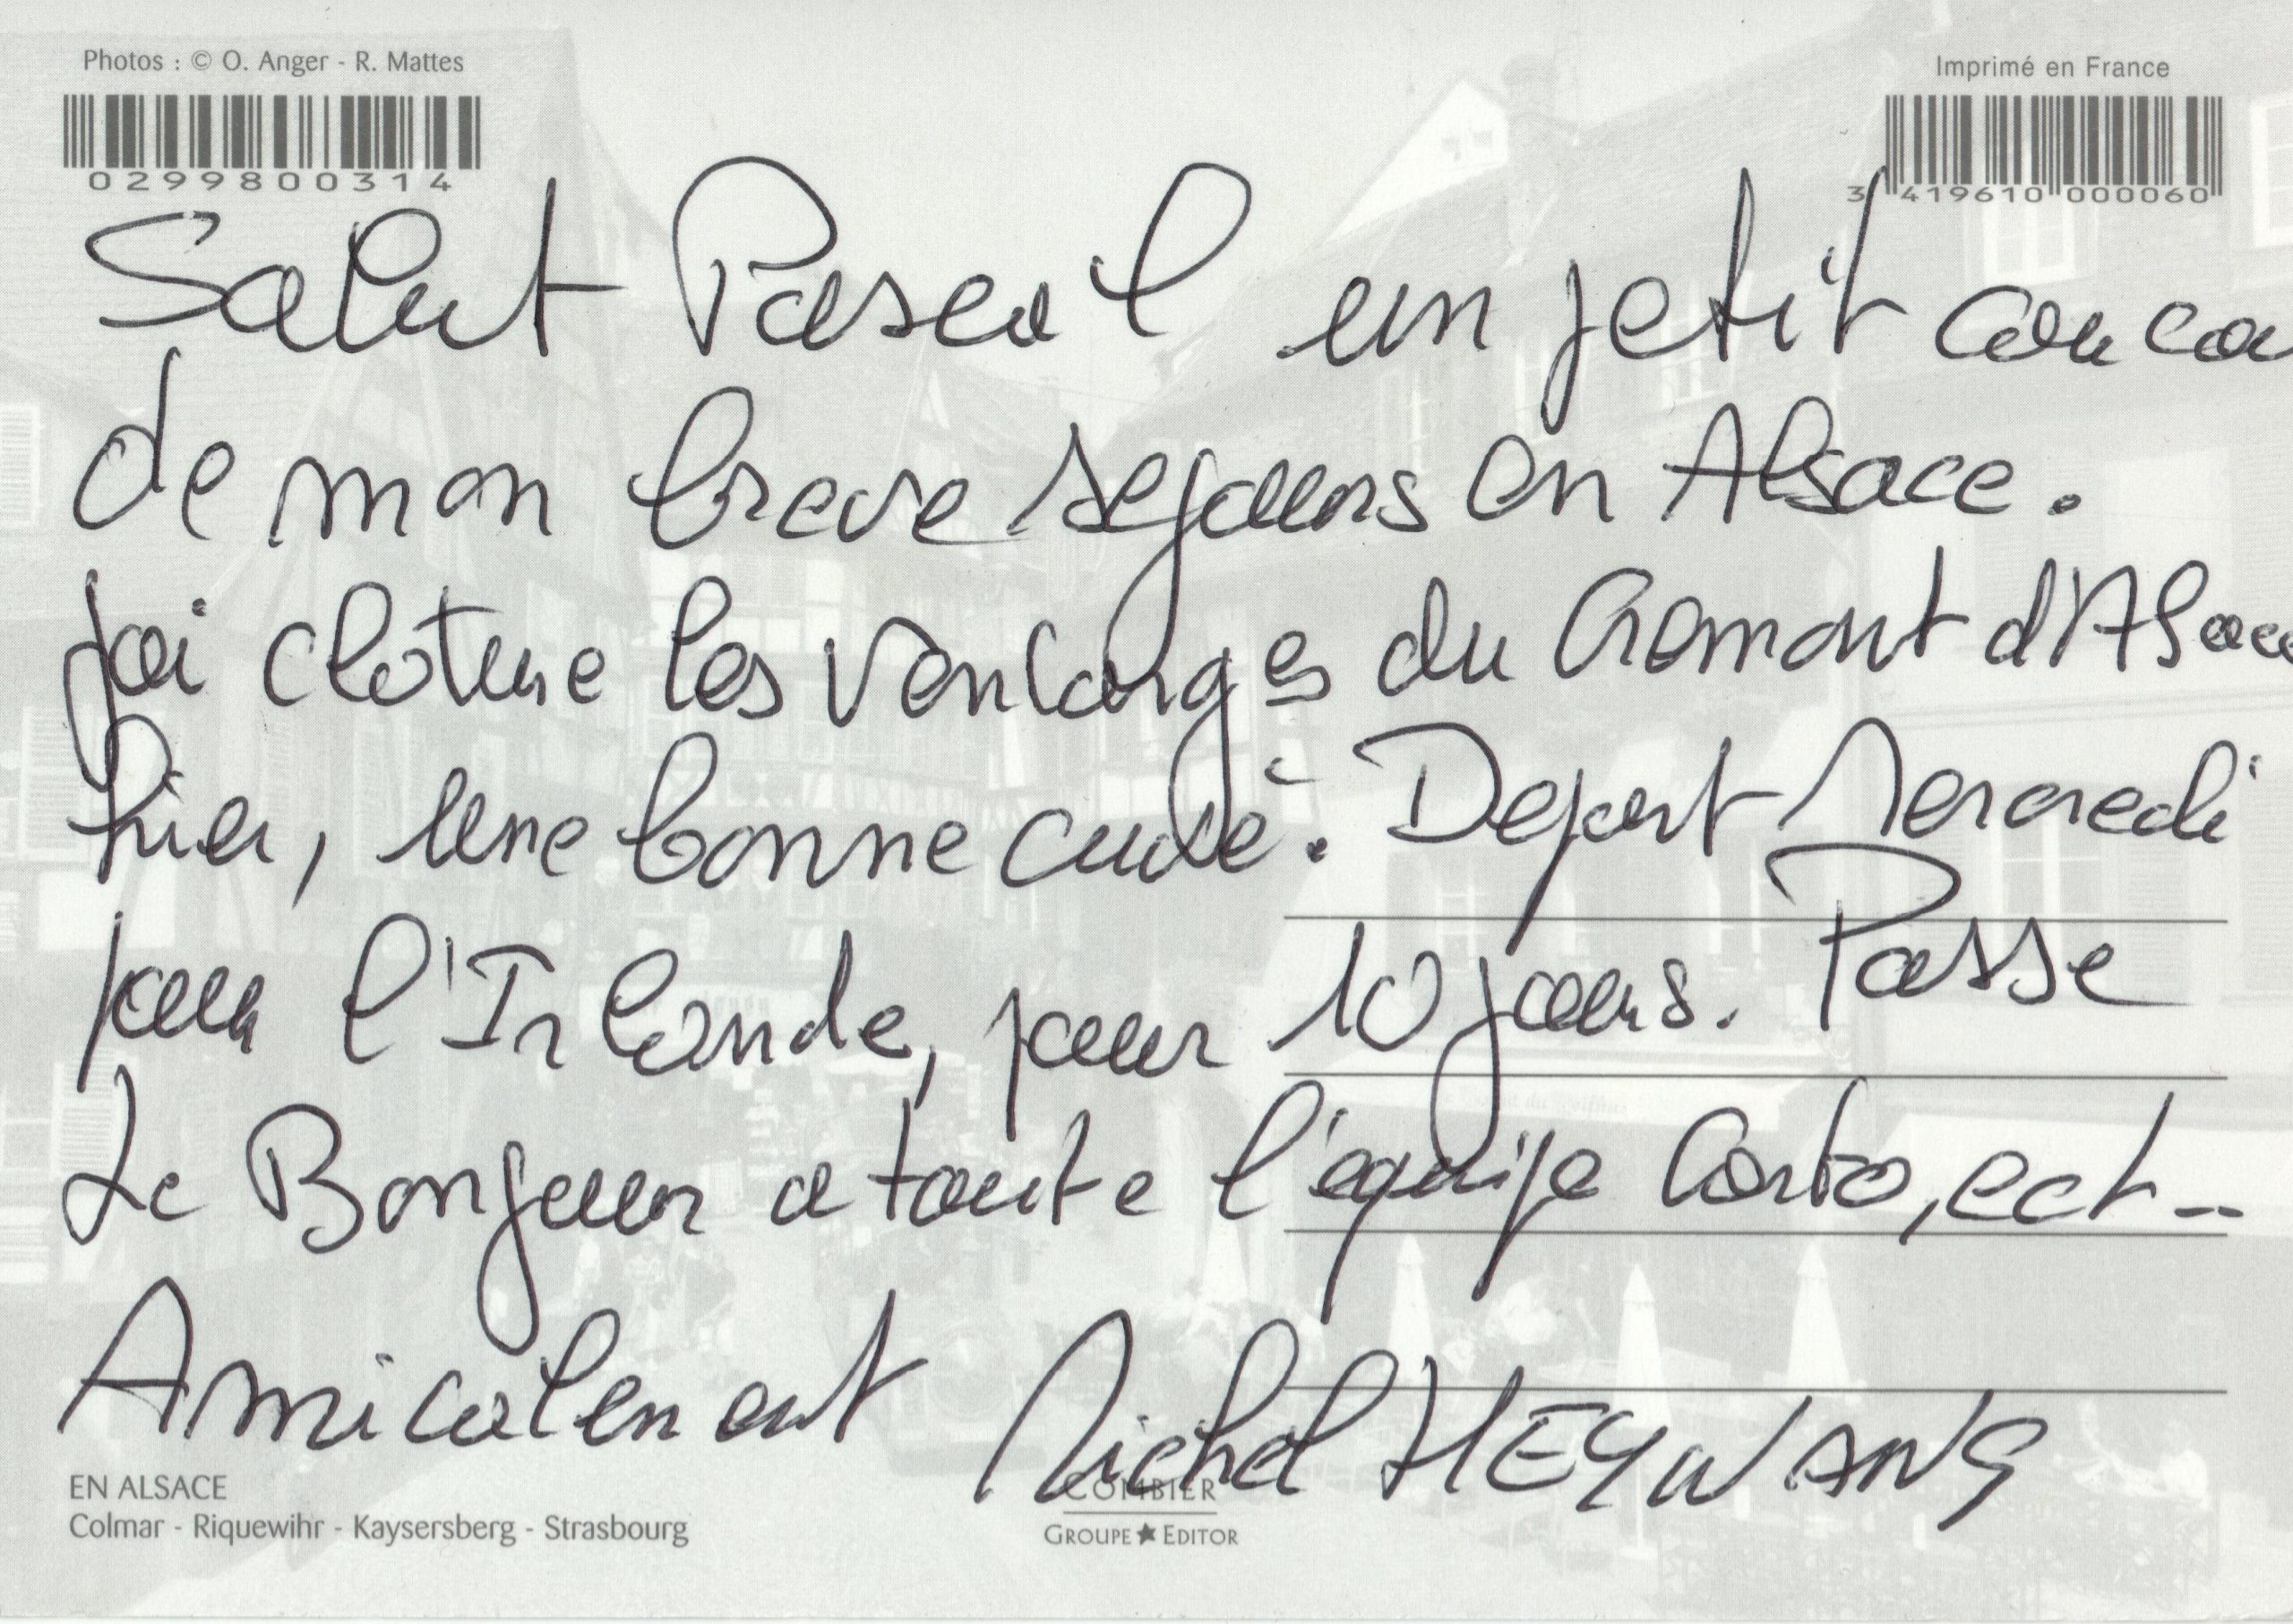 Photos : © O. Anger - R. Mattes
Imprimé en France
0299800314
3 419610 000060
Salut Pascal un petit coucou
de mon breve sejours en Alsace.
jai cloture les vendanges du Cremant d'Alsace
hier, une bonne cuvé. Depart Mercredi
pour l'Irlande, pour 10 jours. Passe
Le Bonjour a toute l'équipe Corto, ect --
Amicalement Michel HEYWANG
EN ALSACE
Colmar - Riquewihr - Kaysersberg - Strasbourg
COMBIER
GROUPE ★ EDITOR